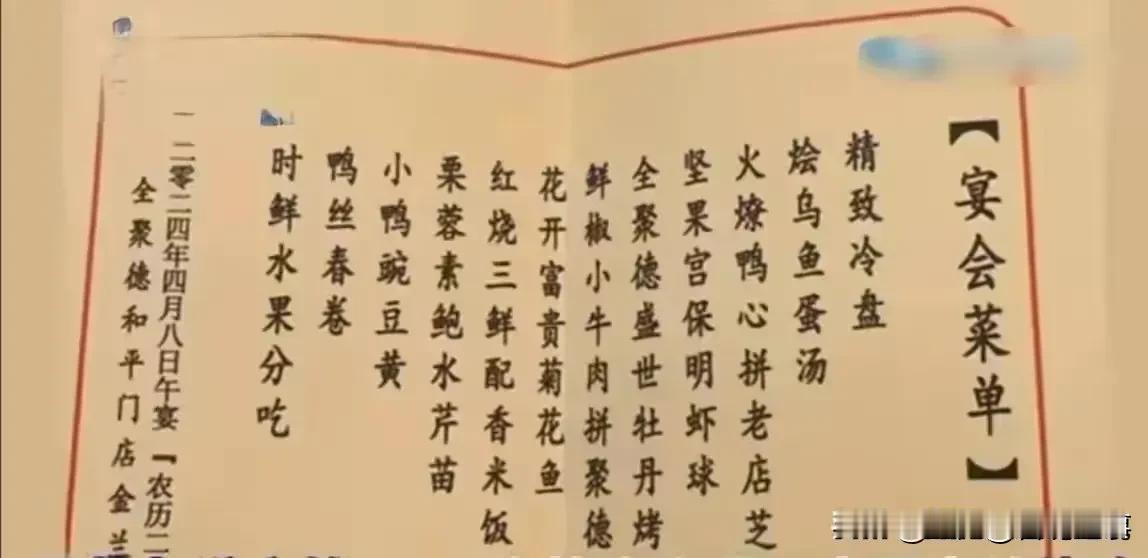 【宴会菜单】
精致冷盘
烩乌鱼蛋汤
火燎鸭心拼老店芝
坚果宫保明虾球
全聚德盛世牡丹烤
鲜椒小牛肉拼聚德
花开富贵菊花鱼
红烧三鲜配香米饭
栗蓉素鲍水芹苗
小鸭豌豆黄
鸭丝春卷
时鲜水果分吃
二零二四年四月八日午宴『农历二
全聚德和平门店金兰